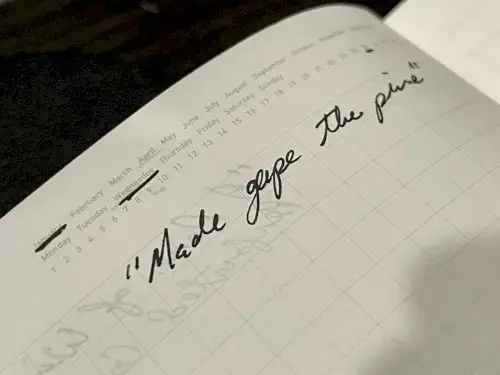 January February March April May June July August September October November December
Monday Tuesday Wednesday Thursday Friday Saturday Sunday
1 2 3 4 5 6 7 8 9 10 11 12 13 14 15 16 17 18 19 20 21 22 23 24
"Made gape the pine"